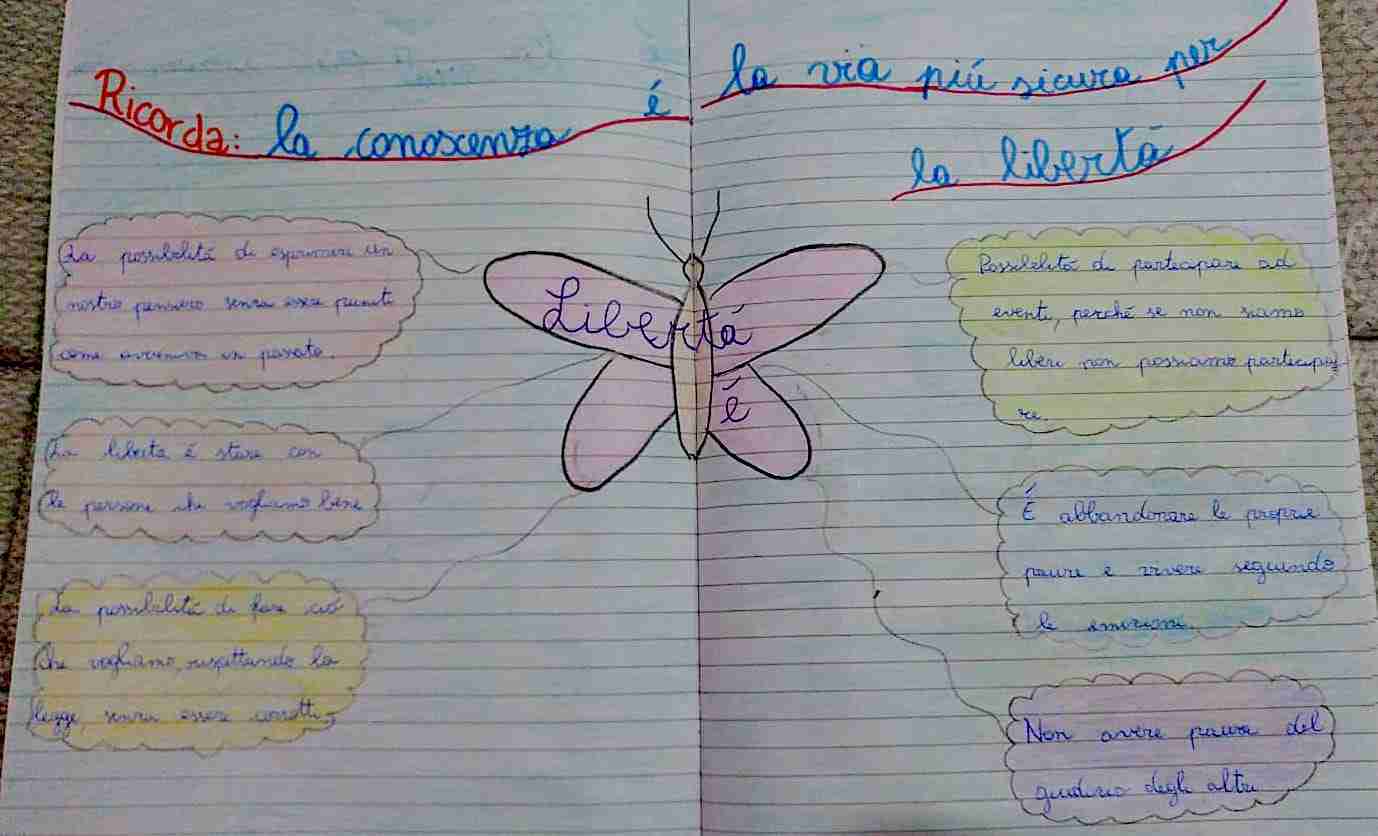 Ricorda: la conoscenza é la via piú sicura per
la libertá
Libertá
é
La possibilitá di esprimere un
nostro pensiero senza essere puniti
come avveniva in passato.
La libertà é stare con
le persone che vogliamo bene
La possibilitá di fare ció
Che vogliamo, rispettando la
legge, senza essere corretti
Possibilitá di partecipare ad
eventi, perché se non siamo
liberi non possiamo partecipa-
re.
É abbandonare le proprie
paure e vivere seguendo
le emozioni.
Non avere paura del
giudizio degli altri